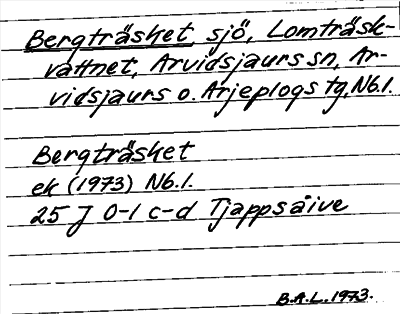 Bergträsket, sjö, Lomträsk-
vattnet, Arvidsjaurs sn, Ar-
vidsjaurs o. Arjeplogs tg, Nb.l.
Bergträsket
ek (1973) Nb.l.
25 J 0-1 c-d Tjappsåive
B.A.L. 1973.